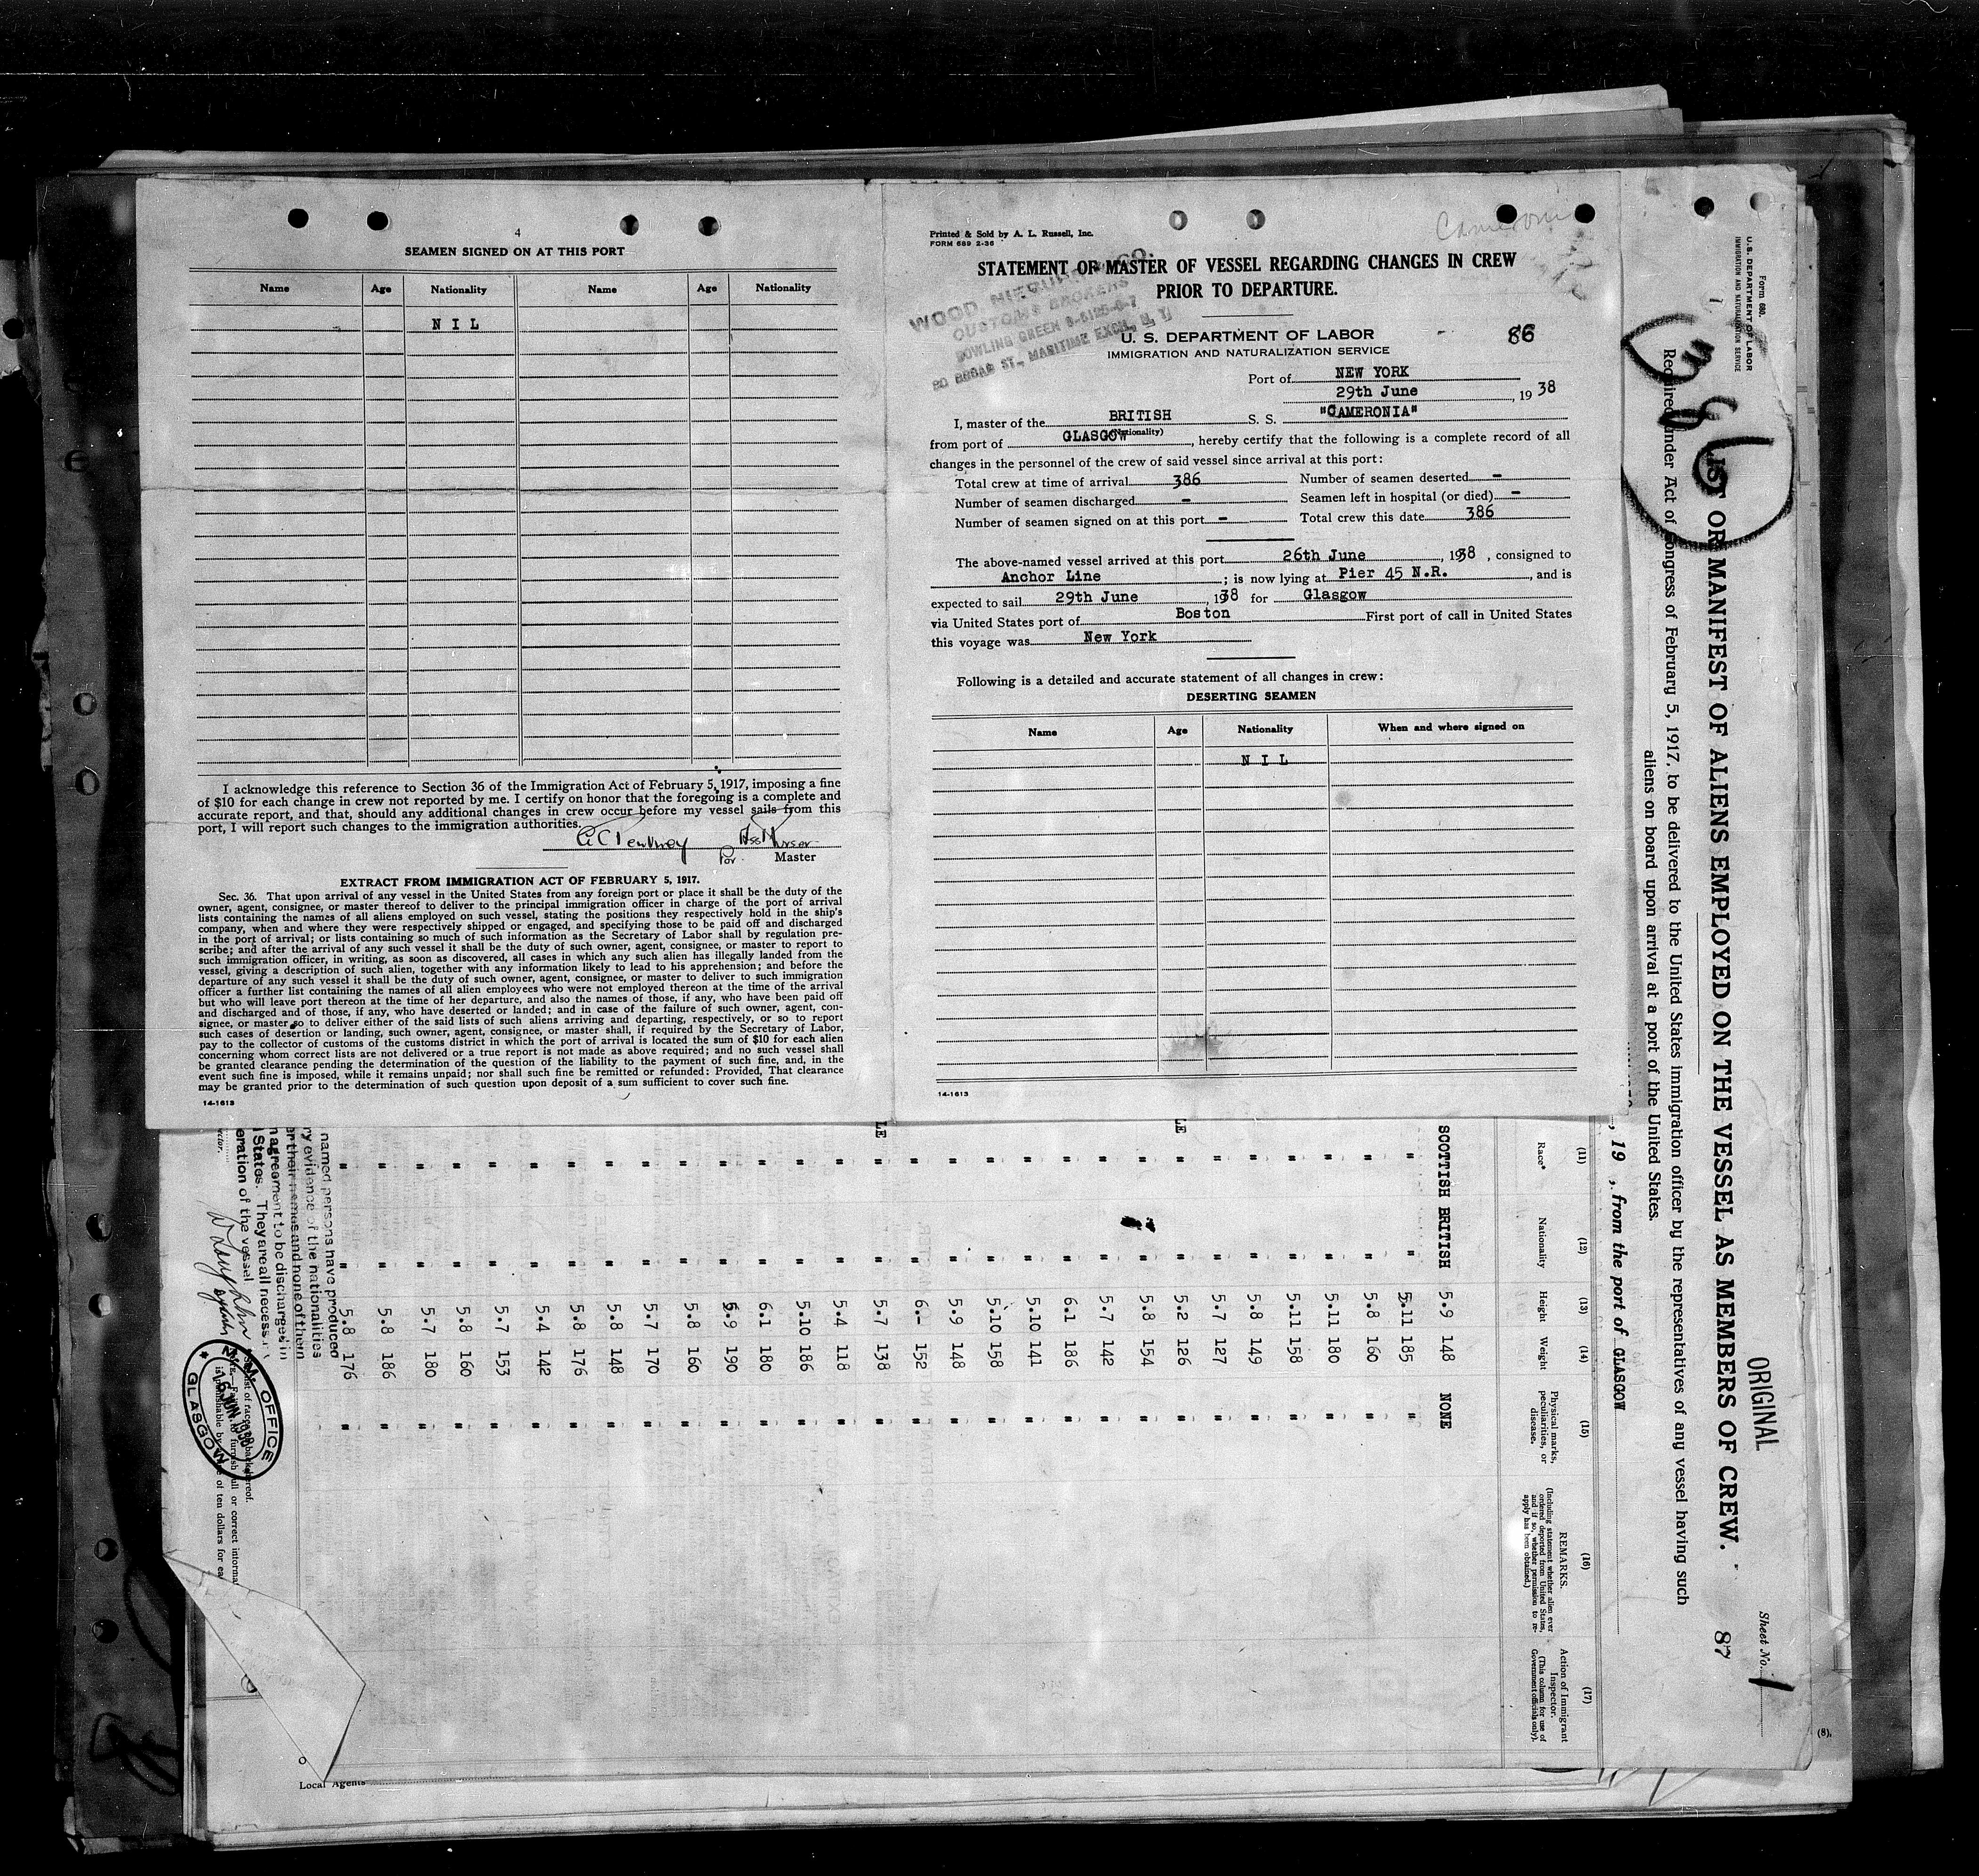 4
SEAMEN SIGNED ON AT THIS PORT
Name Age Nationality Name Age Nationality
N I L
I acknowledge this reference to Section 36 of the Immigration Act of February 5, 1917, imposing a fine
of $10 for each change in crew not reported by me. I certify on honor that the foregoing is a complete and
accurate report, and that, should any additional changes in crew occur before my vessel sails from this
port, I will report such changes to the immigration authorities.
For Master
EXTRACT FROM IMMIGRATION ACT OF FEBRUARY 5, 1917.
Sec. 36. That upon arrival of any vessel in the United States from any foreign port or place it shall be the duty of the
owner, agent, consignee, or master thereof to deliver to the principal immigration officer in charge of the port of arrival
lists containing the names of all aliens employed on such vessel, stating the positions they respectively hold in the ship's
company, when and where they were respectively shipped or engaged, and specifying those to be paid off and discharged
in the port of arrival; or lists containing so much of such information as the Secretary of Labor shall by regulation pre-
scribe; and after the arrival of any such vessel it shall be the duty of such owner, agent, consignee, or master to report to
such immigration officer, in writing, as soon as discovered, all cases in which any such alien has illegally landed from the
vessel, giving a description of such alien, together with any information likely to lead to his apprehension; and before the
departure of any such vessel it shall be the duty of such owner, agent, consignee, or master to deliver to such immigration
officer a further list containing the names of all alien employees who were not employed thereon at the time of the arrival
but who will leave port thereon at the time of her departure, and also the names of those, if any, who have been paid off
and discharged and of those, if any, who have deserted or landed; and in case of the failure of such owner, agent, con-
signee, or master so to deliver either of the said lists of such aliens arriving and departing, respectively, or so to report
such cases of desertion or landing, such owner, agent, consignee, or master shall, if required by the Secretary of Labor,
pay to the collector of customs of the customs district in which the port of arrival is located the sum of $10 for each alien
concerning whom correct lists are not delivered or a true report is not made as above required; and no such vessel shall
be granted clearance pending the determination of the question of the liability to the payment of such fine, and, in the
event such fine is imposed, while it remains unpaid; nor shall such fine be remitted or refunded: Provided, That clearance
may be granted prior to the determination of such question upon deposit of a sum sufficient to cover such fine.
14-1613
Cameronia
Printed & Sold by A. L. Russell, Inc.
FORM 689 2-36
STATEMENT OF MASTER OF VESSEL REGARDING CHANGES IN CREW
PRIOR TO DEPARTURE.
WOOD NIEBUHR & CO.
CUSTOMS BROKERS
BOWLING GREEN 9-5125-6-7
80 BROAD ST., MARITIME EXCH., N. Y.
U. S. DEPARTMENT OF LABOR 86
IMMIGRATION AND NATURALIZATION SERVICE
Port of NEW YORK
29th June, 1938
I, master of the BRITISH S. S. "CAMERONIA"
(Nationality)
from port of GLASGOW, hereby certify that the following is a complete record of all
changes in the personnel of the crew of said vessel since arrival at this port:
Total crew at time of arrival 386 Number of seamen deserted -
Number of seamen discharged - Seamen left in hospital (or died) -
Number of seamen signed on at this port - Total crew this date 386
The above-named vessel arrived at this port 26th June, 1938, consigned to
Anchor Line; is now lying at Pier 45 N.R., and is
expected to sail 29th June, 1938 for Glasgow
via United States port of Boston First port of call in United States
this voyage was New York
Following is a detailed and accurate statement of all changes in crew:
DESERTING SEAMEN
Name Age Nationality When and where signed on
N I L
14-1613
Form 680.
U. S. DEPARTMENT OF LABOR
IMMIGRATION AND NATURALIZATION SERVICE
386
ORIGINAL
Sheet No. 1
(8)
LIST OR MANIFEST OF ALIENS EMPLOYED ON THE VESSEL AS MEMBERS OF CREW. 87
Required under Act of Congress of February 5, 1917, to be delivered to the United States immigration officer by the representatives of any vessel having such
aliens on board upon arrival at a port of the United States.
, 19 , from the port of GLASGOW
(11) (12) (13) (14) (15) (16) (17)
Race* Nationality Height Weight Physical marks, peculiarities, or disease. REMARKS. (Including statement whether alien ever ordered deported from United States, and if so, whether permission to re-apply has been obtained.) Action of Immigrant Inspector. (This column for use of Government officials only).
SCOTTISH BRITISH 5.9 148 NONE
" " 5.11 185 "
" " 5.8 160 "
" " 5.11 180 "
" " 5.11 158 "
" " 5.8 149 "
" " 5.7 127 "
LE " " 5.2 126 "
" " 5.8 154 "
" " 5.7 142 "
" " 6.1 186 "
" " 5.10 141 "
" " 5.10 158 "
" " 5.9 148 "
" " 6.- 152 "
LE " " 5.7 138 "
" " 5.4 118 "
" " 5.10 186 "
" " 6.1 180 "
" " 5.9 190 "
" " 5.8 160 "
" " 5.7 170 "
" " 5.8 148 "
" " 5.8 176 "
" " 5.4 142 "
" " 5.7 153 "
" " 5.8 160 "
" " 5.7 180 "
" " 5.8 186 "
" " 5.8 176 "
named persons have produced
ry evidence of the nationalities
er their names and none of them
n agreement to be discharged in
States. They are all necessary
eration of the vessel
OFFICE
GLASGOW
Local Agents